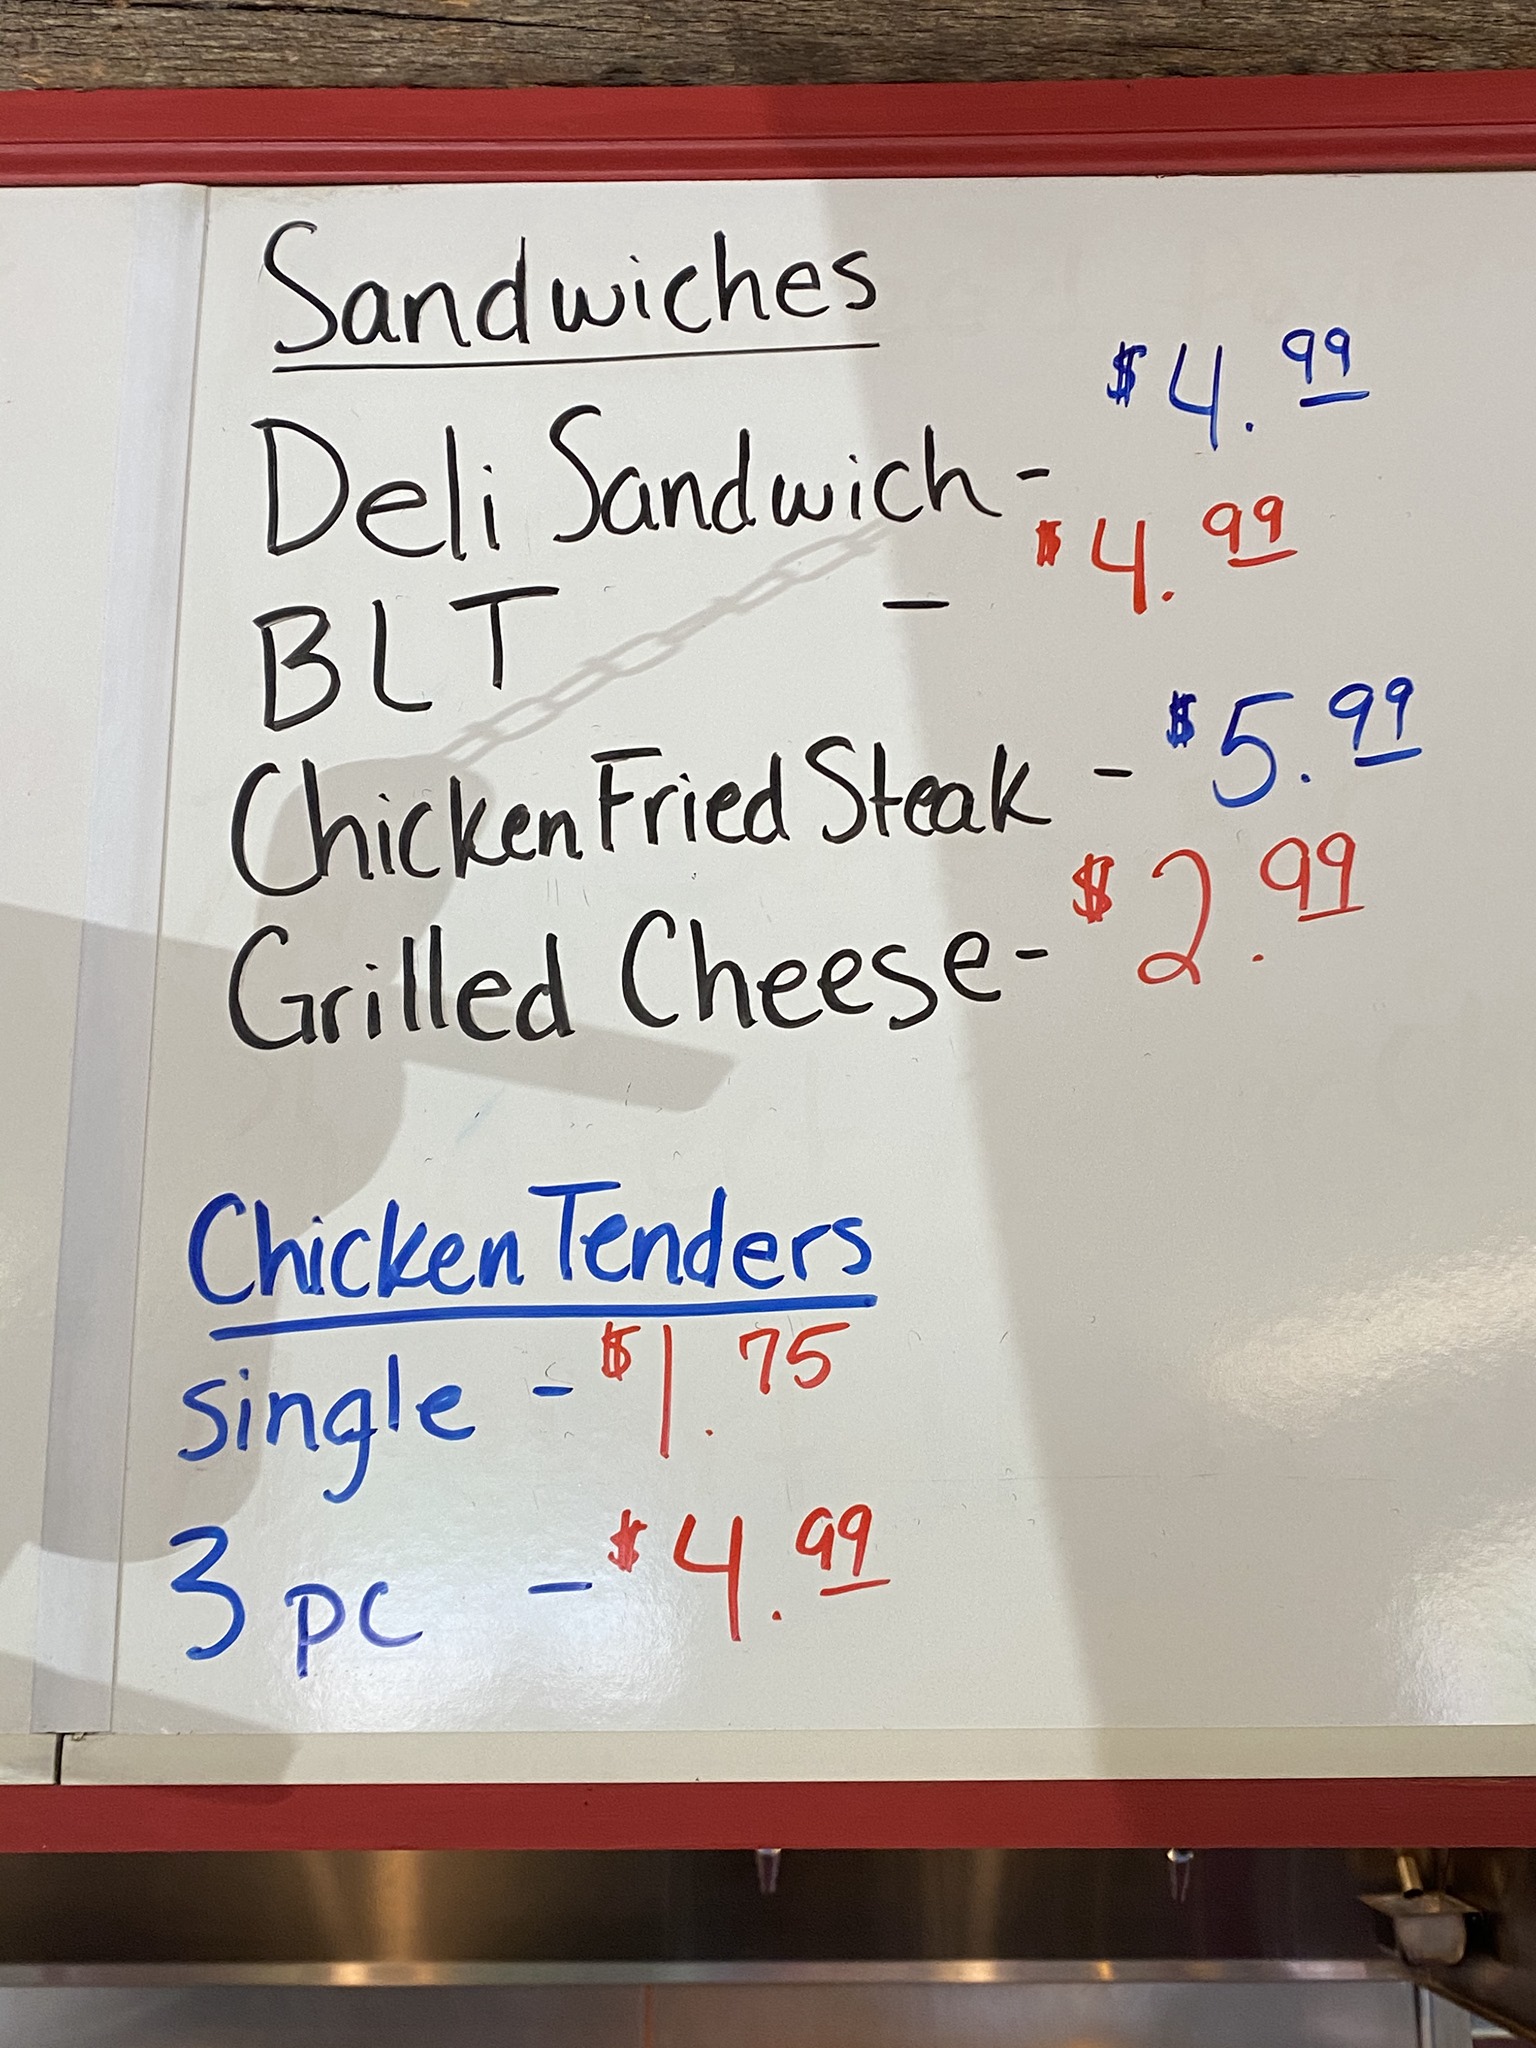 Sandwiches
Deli Sandwich - $4.99
BLT - $4.99
Chicken Fried Steak - $5.99
Grilled Cheese - $2.99
Chicken Tenders
single - $1.75
3 pc - $4.99